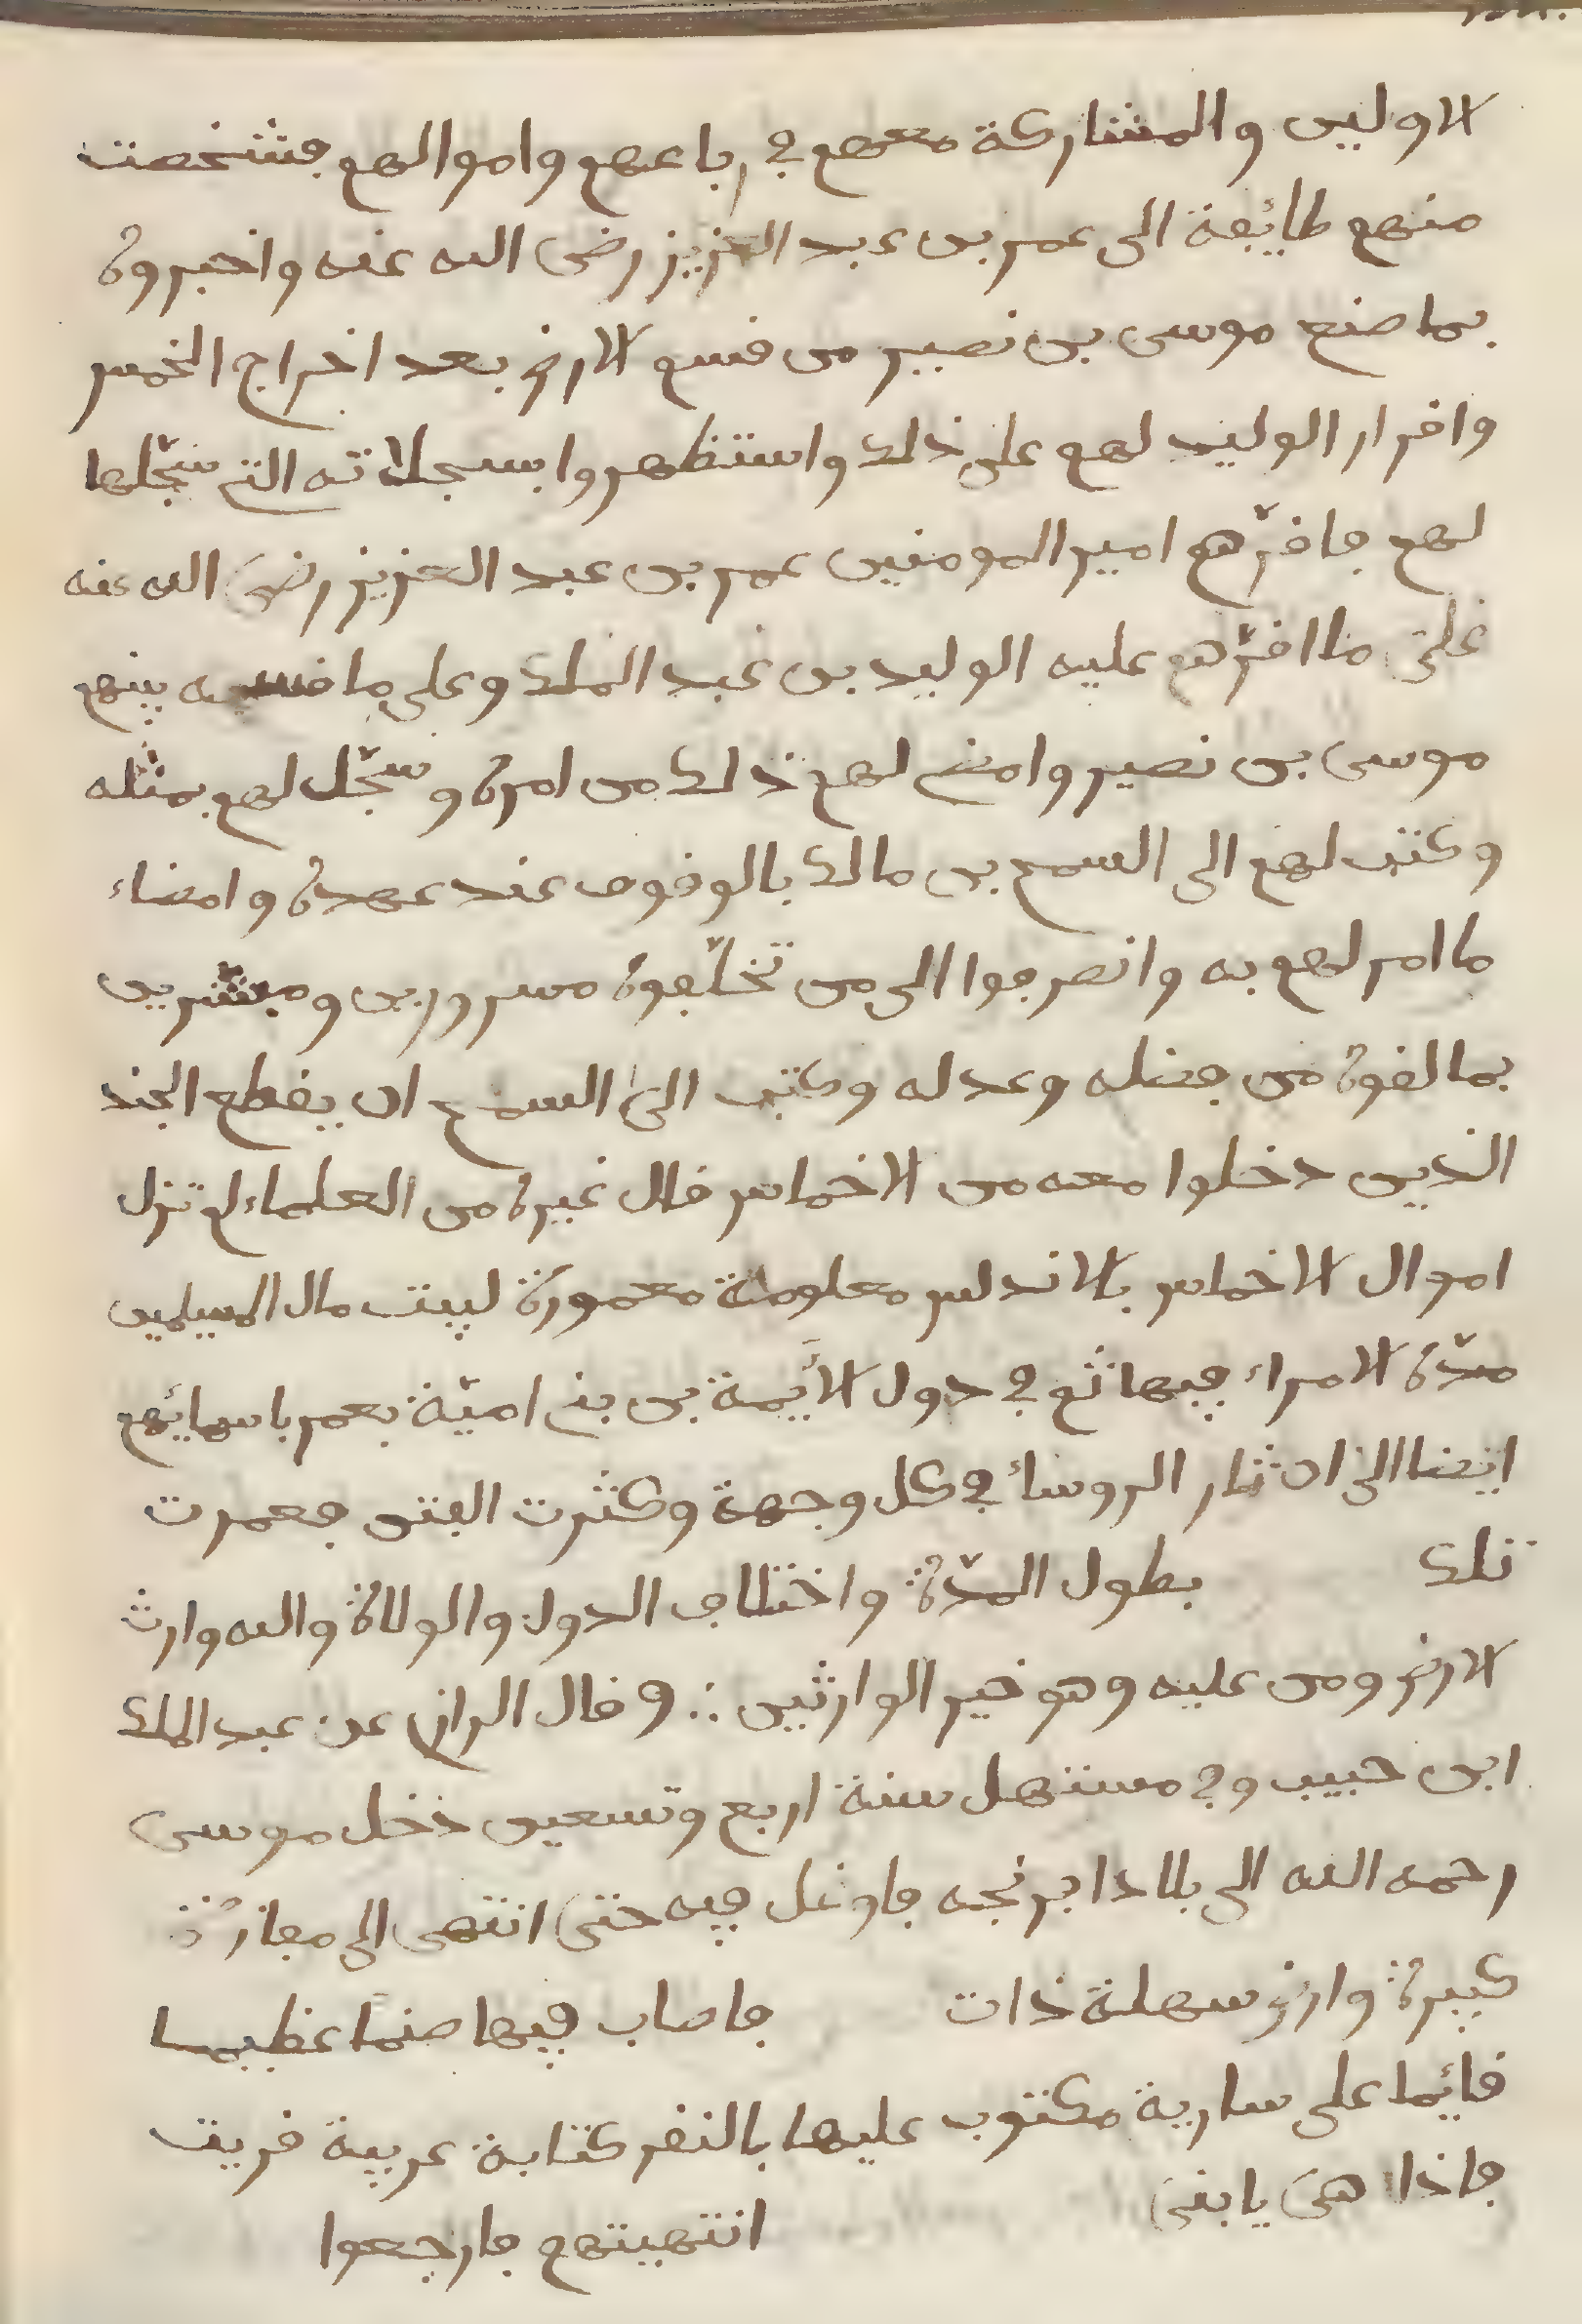 الاولين والمشاركة معهم في رباعهم واموالهم فشخصت
منهم طائفة الى عمر بن عبد العزيز رضى الله عنه واخبروه
بما صنع موسى بن نصير من قسم الارض بعد اخراج الخمس
واقرار الوليد لهم على ذلك واستظهروا بسجلاته التي سجّلها
لهم فاقرّهم امير المومنين عمر بن عبد العزيز رضى الله عنه
على ما اقرّهم عليه الوليد بن عبد الملك وعلى ما قسمه بينهم
موسى بن نصير وامضى لهم ذلك من امره وسجّل لهم بمثله
وكتب لهم الى السمح بن مالك بالوقوف عند عهده وامضاء
ما امر لهم به وانصرفوا الى من تخلّفوه مسرورين ومبشّرين
بما لقوه من فضله وعدله وكتب الى السمح ان يقطع الجند
الذين دخلوا معه من الاخماس قال غيره من العلماء لم تزل
اموال الاخماس بالاندلس معلومة معمورة لبيت مال المسلمين
مدّة الامراء فيها ثم في دول الأيمة بن بني اميّة بعمر باسمائهم
ايضا الى ان ثار الروساء في كل وجهة وكثرت الفتن فعمرت
تلك بطول المدّة واختلاف الدول والولاة والله وارث
الارض ومن عليه وهو خير الوارثين ∴ وقال الرازي عن عبد الملك
ابن حبيب وفي مستهل سنة اربع وتسعين دخل موسى
رحمه الله الى بلاد ابرنجه فاوغل فيه حتى انتهى الى مفازة
كبيرة وارض سهلة ذات فاصاب فيها صنما عظيما
قائما على سارية مكتوب عليها بالنقر كتابة عربية قريت
فاذا هى يا بنى انتهيتهم فارجعوا